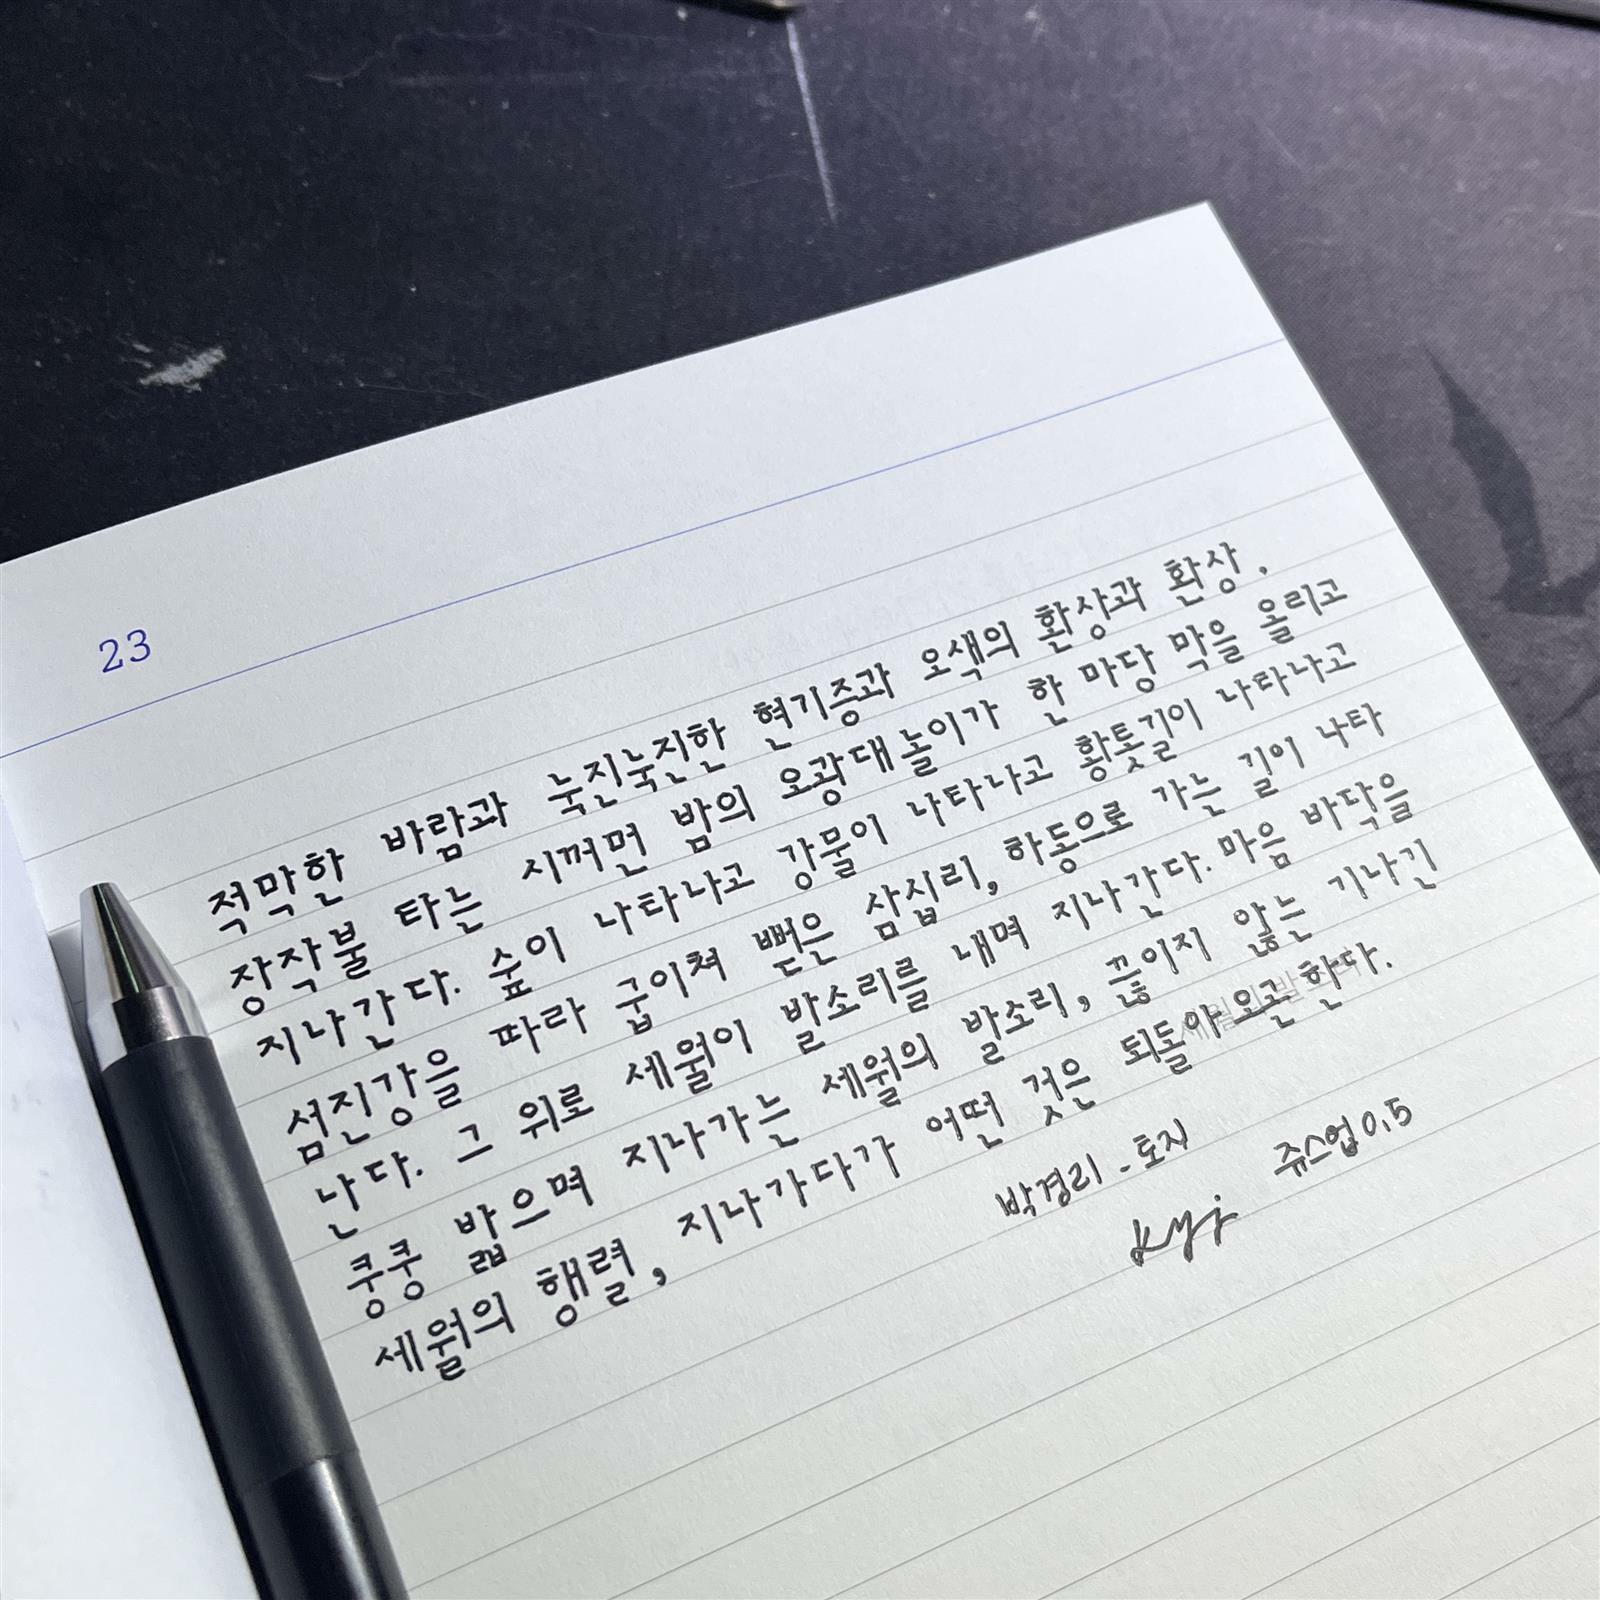 23
적막한 바람과 눅진눅진한 현기증과 오색의 환상과 환상.
장작불 타는 시꺼먼 밤의 오광대놀이가 한 마당 막을 올리고
지나간다. 숲이 나타나고 강물이 나타나고 황톳길이 나타나고
섬진강을 따라 굽이쳐 뻗은 삼십리, 하동으로 가는 길이 나타
난다. 그 위로 세월이 발소리를 내며 지나간다. 마음 바닥을
쿵쿵 밟으며 지나가는 세월의 발소리, 끊이지 않는 기나긴
세월의 행렬, 지나가다가 어떤 것은 되돌아 오곤 한다.
박경리 - 토지
쥬스업 0.5